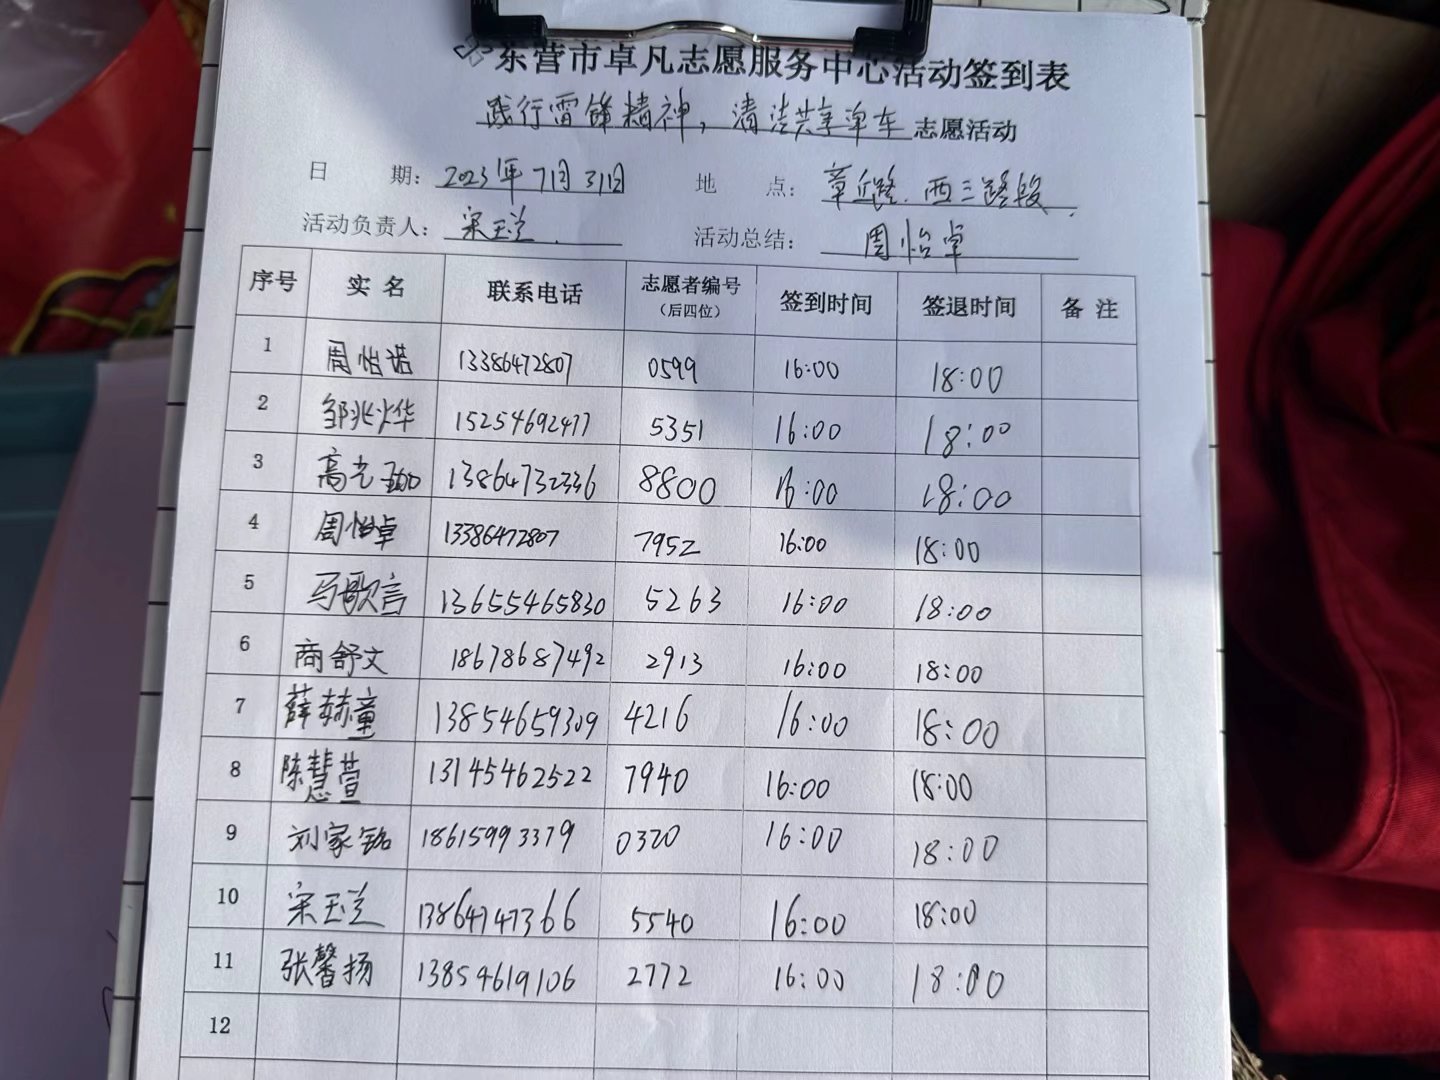 东营市卓凡志愿服务中心活动签到表
践行雷锋精神，清洁共享单车 志愿活动
日 期： 2023年7月31日 地 点： 章丘路.西三路段.
活动负责人： 宋玉兰. 活动总结： 周怡卓
序号 实名 联系电话 志愿者编号（后四位） 签到时间 签退时间 备注
1 周怡诺 13386472807 0599 16:00 18:00
2 邹兆烨 15254692477 5351 16:00 18:00
3 高 13864732336 8800 16:00 18:00
4 周怡卓 13386472807 7952 16:00 18:00
5 马歌言 13655465830 5263 16:00 18:00
6 商舒文 18678687492 2913 16:00 18:00
7 薛赫童 13854659309 4216 16:00 18:00
8 陈慧萱 13145462522 7940 16:00 18:00
9 刘家铭 18615993379 0320 16:00 18:00
10 宋玉兰 13864747366 5540 16:00 18:00
11 张馨扬 13854619106 2772 16:00 18:00
12